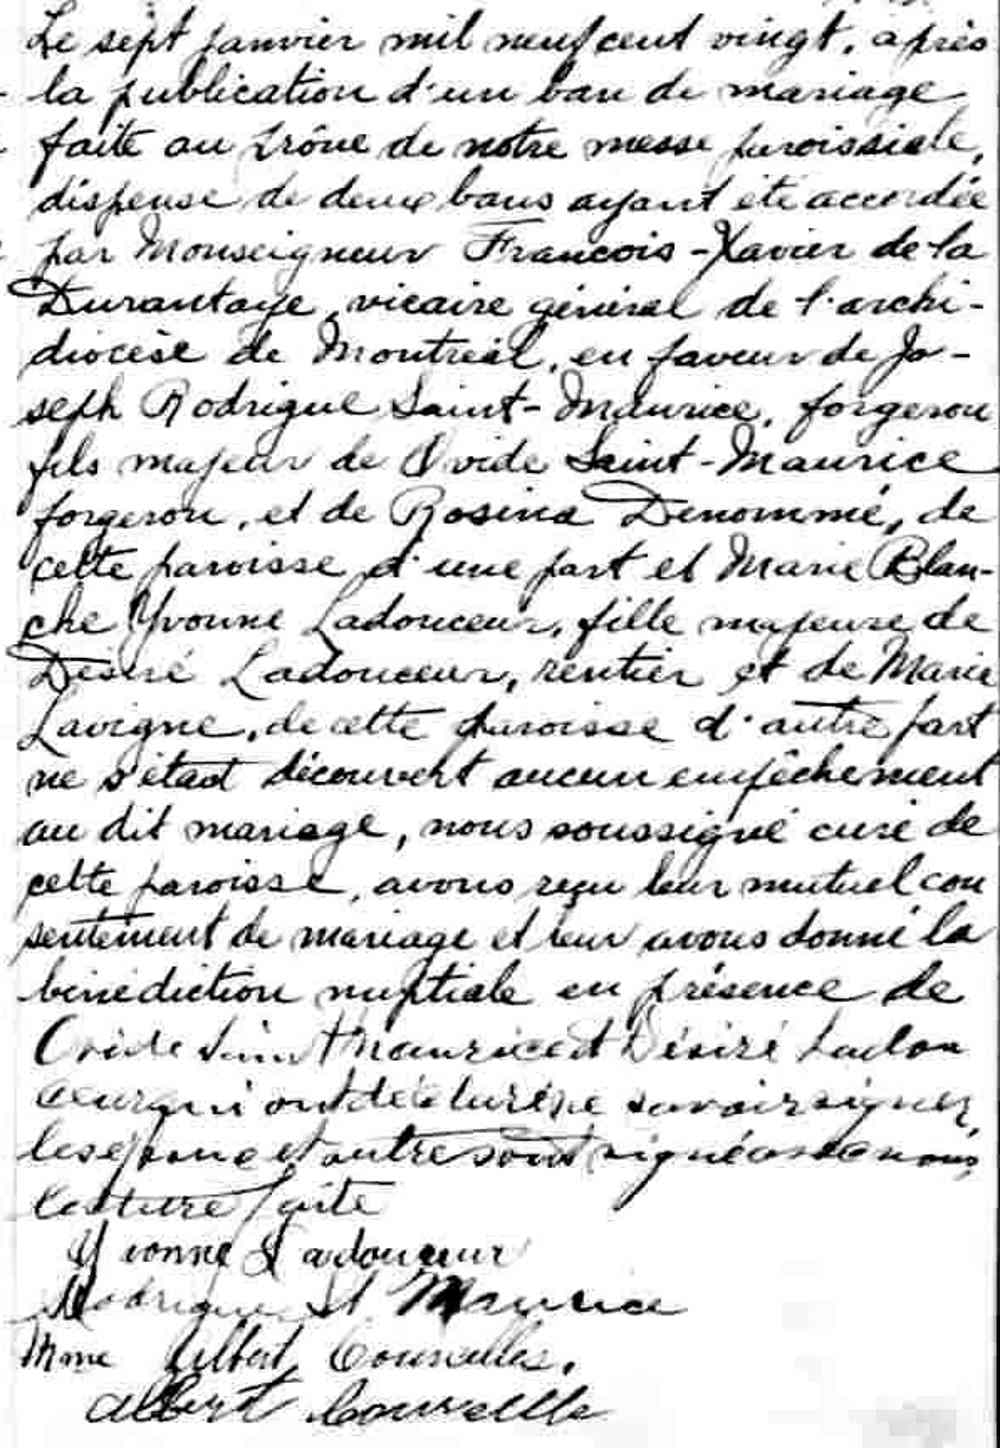 Le sept janvier mil neuf cent vingt, après
la publication d'un ban de mariage
faite au prône de notre messe paroissiale,
dispense de deux bans ayant été accordée
par Monseigneur Francois-Xavier de la
Durantaye, vicaire général de l'archi-
diocèse de Montréal, en faveur de Jo-
seph Rodrigue Saint-Maurice, forgeron
fils majeur de Ovide Saint-Maurice
forgeron, et de Rosina Denommé, de
cette paroisse d'une part et Marie Blan-
che Yvonne Ladouceur, fille majeure de
Désiré Ladouceur, rentier et de Marie
Lavigne, de cette paroisse d'autre part
ne s'étant découvert aucun empêchement
au dit mariage, nous soussigné curé de
cette paroisse, avons reçu leur mutuel con
sentement de mariage et leur avons donné la
bénédiction nuptiale en présence de
Ovide Saint Maurice et Désiré Ladou
ceur qui ont déclaré ne savoir signer,
les époux et autres sont signé avec nous,
lecture faite
Yvonne Ladouceur
Rodrigue St Maurice
Mme Albert Courcelles.
Albert Courcelle